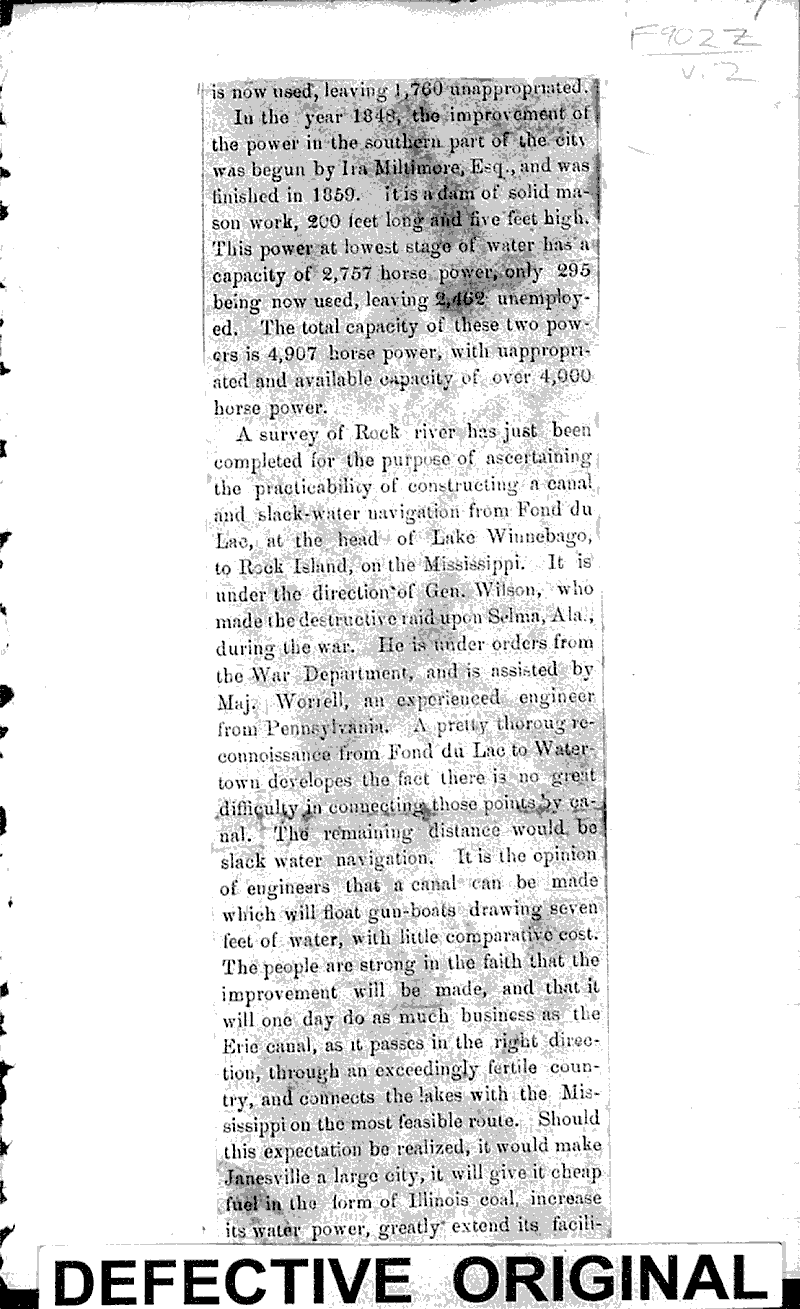 F902Z
v.2
is now used, leaving 1,760 unappropriated.
In the year 1848, the improvement of
the power in the southern part of the city
was begun by Ira Miltimore, Esq., and was
finished in 1859. it is a dam of solid ma-
son work, 200 feet long and five feet high.
This power at lowest stage of water has a
capacity of 2,757 horse power, only 295
being now used, leaving 2,462 unemploy-
ed. The total capacity of these two pow-
ers is 4,907 horse power, with uappropri-
ated and available capacity of over 4,000
horse power.
A survey of Rock river has just been
completed for the purpose of ascertaining
the practicability of constructing a canal
and slack-water navigation from Fond du
Lac, at the head of Lake Winnebago,
to Rock Island, on the Mississippi. It is
under the direction of Gen. Wilson, who
made the destructive raid upon Selma, Ala.,
during the war. He is under orders from
the War Department, and is assisted by
Maj. Worrell, an experienced engineer
from Pennsylvania. A pretty thoroug re-
connoissance from Fond du Lac to Water-
town developes the fact there is no great
difficulty in connecting those points by ca-
nal. The remaining distance would be
slack water navigation. It is the opinion
of engineers that a canal can be made
which will float gun-boats drawing seven
feet of water, with little comparative cost.
The people are strong in the faith that the
improvement will be made, and that it
will one day do as much business as the
Erie canal, as it passes in the right direc-
tion, through an exceedingly fertile coun-
try, and connects the lakes with the Mis-
sissippi on the most feasible route. Should
this expectation be realized, it would make
Janesville a large city, it will give it cheap
fuel in the form of Illinois coal, increase
its water power, greatly extend its facili-
DEFECTIVE ORIGINAL